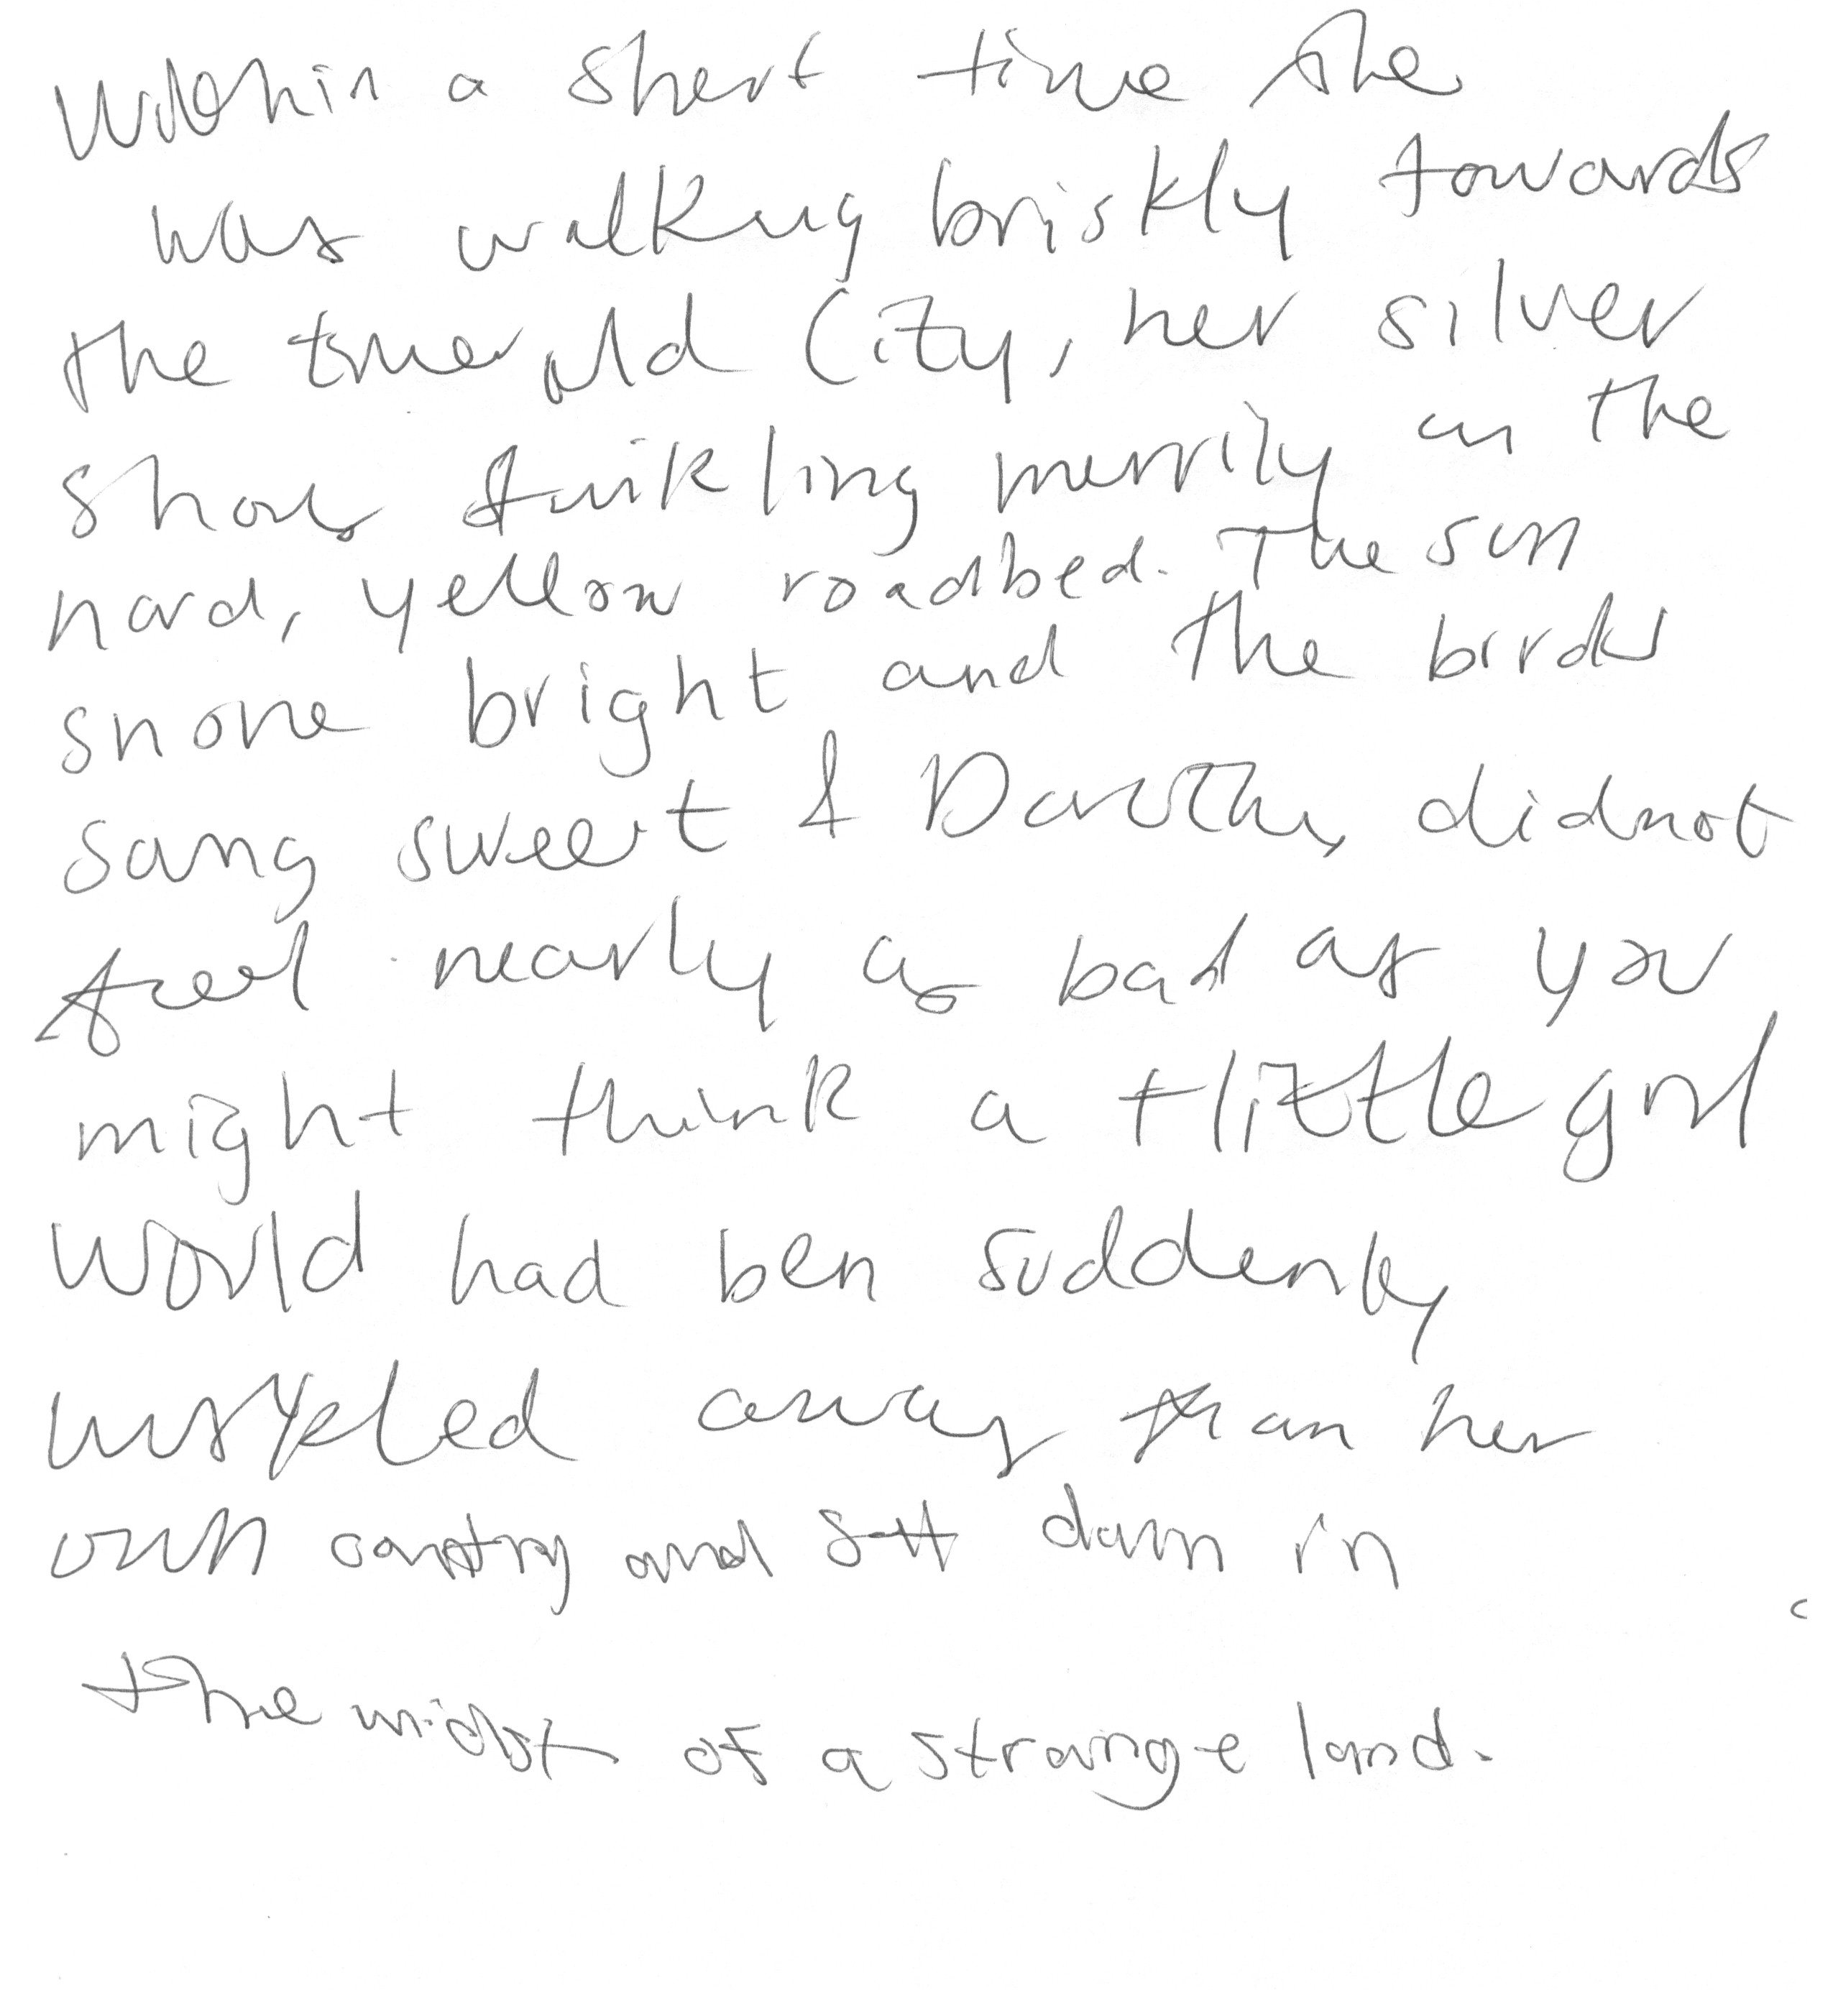 Within a short time she
was walking briskly towards
the Emerald City, her silver
shoes twinkling merrily on the
hard, yellow roadbed. The sun
shone bright and the birds
sang sweet & Dorothy did not
feel nearly as bad as you
might think a little girl
would had ben suddenly
away than her
own contry and sett down in
the midst of a strange land.